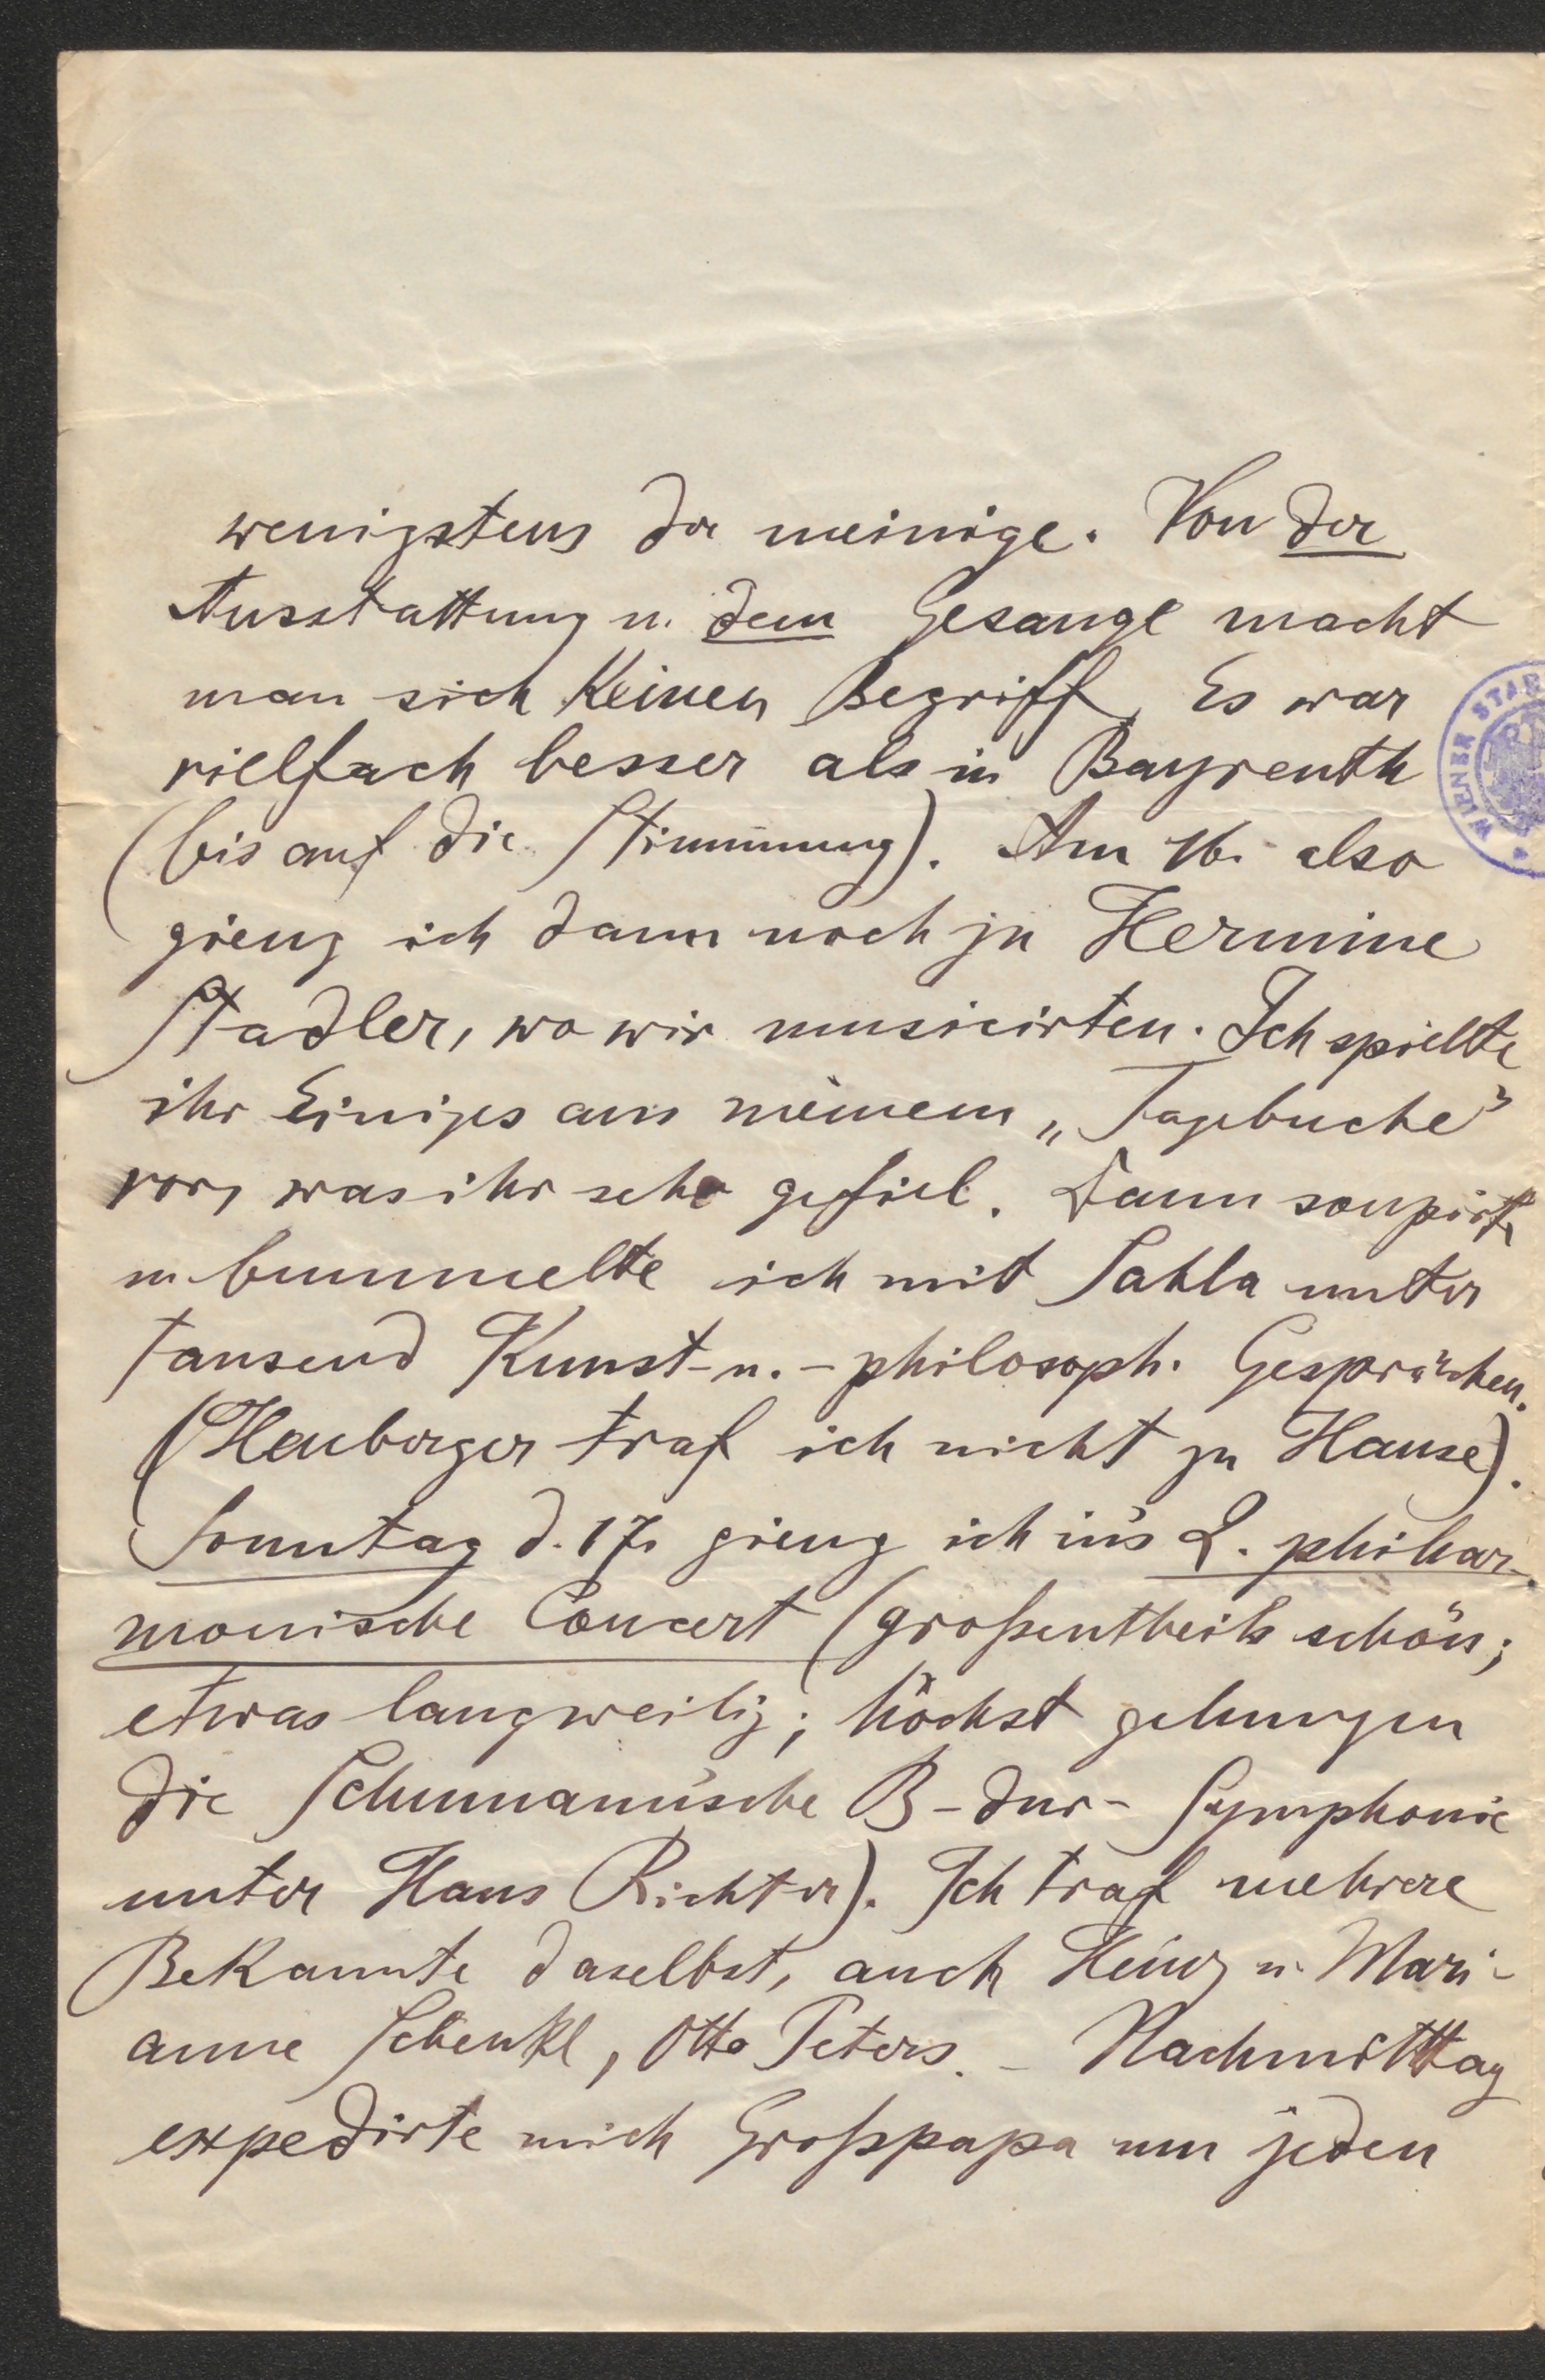 wenigstens der meinige. Von der
Ausstattung u. dem Gesange macht
man sich keinen Begriff. Es war
vielfach besser als in Bayreuth
(bis auf die Stimmung). Am 16. also
gieng ich dann noch zu Hermine
Stadler, wo wir musicirten. Ich spielte
ihr Einiges aus meinem „Tagebuche"
vor, was ihr sehr gefiel. Dann soupirte
u. bummelte ich mit Sahla unter
tausend Kunst- u. -philosoph. Gesprächen.
(Heuberger traf ich nicht zu Hause).
Sonntag d. 17. gieng ich in's 2. philhar-
monische Concert (großentheils schön;
etwas langweilig; höchst gelungen
die Schumann'sche B-dur-Symphonie
unter Hans Richter). Ich traf mehrere
Bekannte daselbst, auch Heinz u. Mari-
anne Schenkl, Otto Peters. – Nachmitttag
expedirte mich Großpapa um jeden
WIENER STA